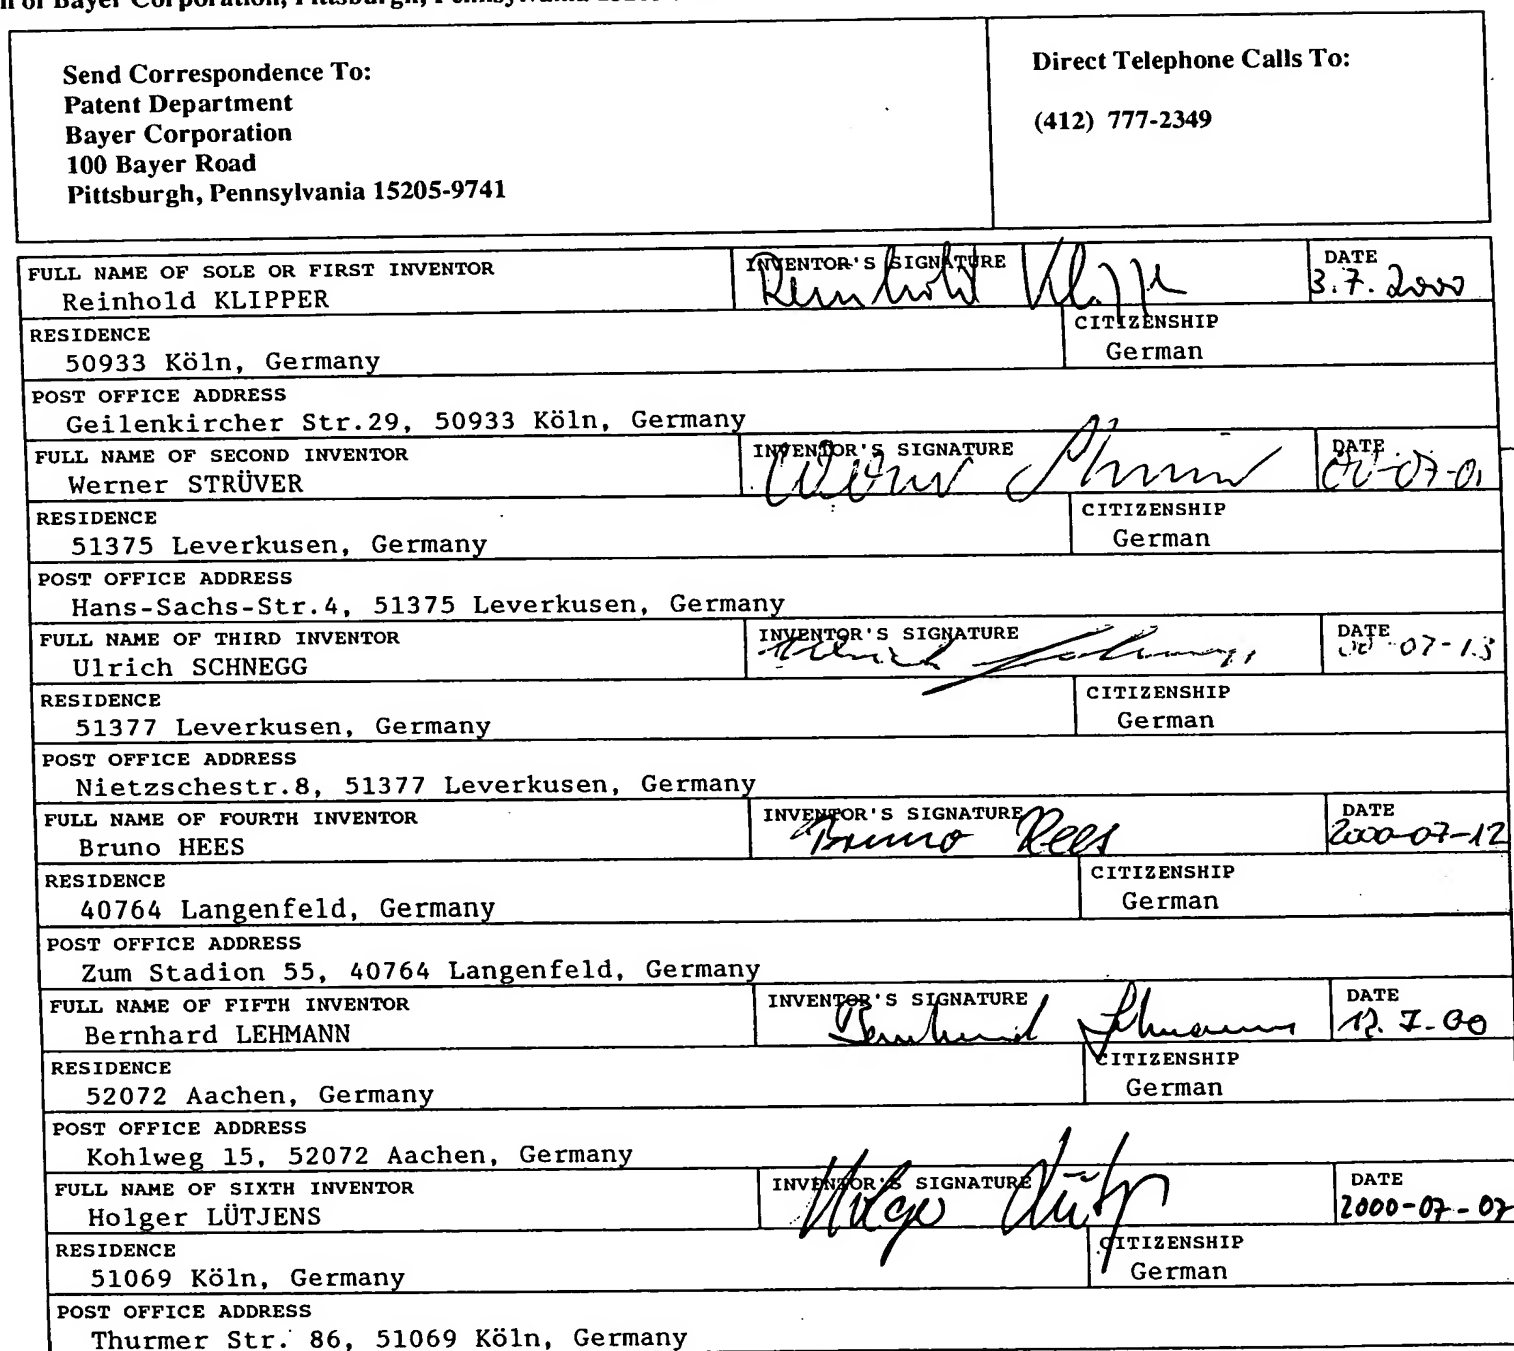 n of Bayer Corporation, Pittsburgh, Pennsylvania
Send Correspondence To:
Patent Department
Bayer Corporation
100 Bayer Road
Pittsburgh, Pennsylvania 15205-9741
Direct Telephone Calls To:
(412) 777-2349
FULL NAME OF SOLE OR FIRST INVENTOR
Reinhold KLIPPER
INVENTOR'S SIGNATURE
Reinhold Klipper
DATE
3.7.2000
RESIDENCE
50933 Köln, Germany
CITIZENSHIP
German
POST OFFICE ADDRESS
Geilenkircher Str.29, 50933 Köln, Germany
FULL NAME OF SECOND INVENTOR
Werner STRÜVER
INVENTOR'S SIGNATURE
Werner Strüver
DATE
00-07-01
RESIDENCE
51375 Leverkusen, Germany
CITIZENSHIP
German
POST OFFICE ADDRESS
Hans-Sachs-Str.4, 51375 Leverkusen, Germany
FULL NAME OF THIRD INVENTOR
Ulrich SCHNEGG
INVENTOR'S SIGNATURE
Ulrich Schnegg
DATE
00-07-13
RESIDENCE
51377 Leverkusen, Germany
CITIZENSHIP
German
POST OFFICE ADDRESS
Nietzschestr.8, 51377 Leverkusen, Germany
FULL NAME OF FOURTH INVENTOR
Bruno HEES
INVENTOR'S SIGNATURE
Bruno Hees
DATE
2000-07-12
RESIDENCE
40764 Langenfeld, Germany
CITIZENSHIP
German
POST OFFICE ADDRESS
Zum Stadion 55, 40764 Langenfeld, Germany
FULL NAME OF FIFTH INVENTOR
Bernhard LEHMANN
INVENTOR'S SIGNATURE
Bernhard Lehmann
DATE
12.7.00
RESIDENCE
52072 Aachen, Germany
CITIZENSHIP
German
POST OFFICE ADDRESS
Kohlweg 15, 52072 Aachen, Germany
FULL NAME OF SIXTH INVENTOR
Holger LÜTJENS
INVENTOR'S SIGNATURE
Holger Lütj
DATE
2000-07-07
RESIDENCE
51069 Köln, Germany
CITIZENSHIP
German
POST OFFICE ADDRESS
Thurmer Str. 86, 51069 Köln, Germany